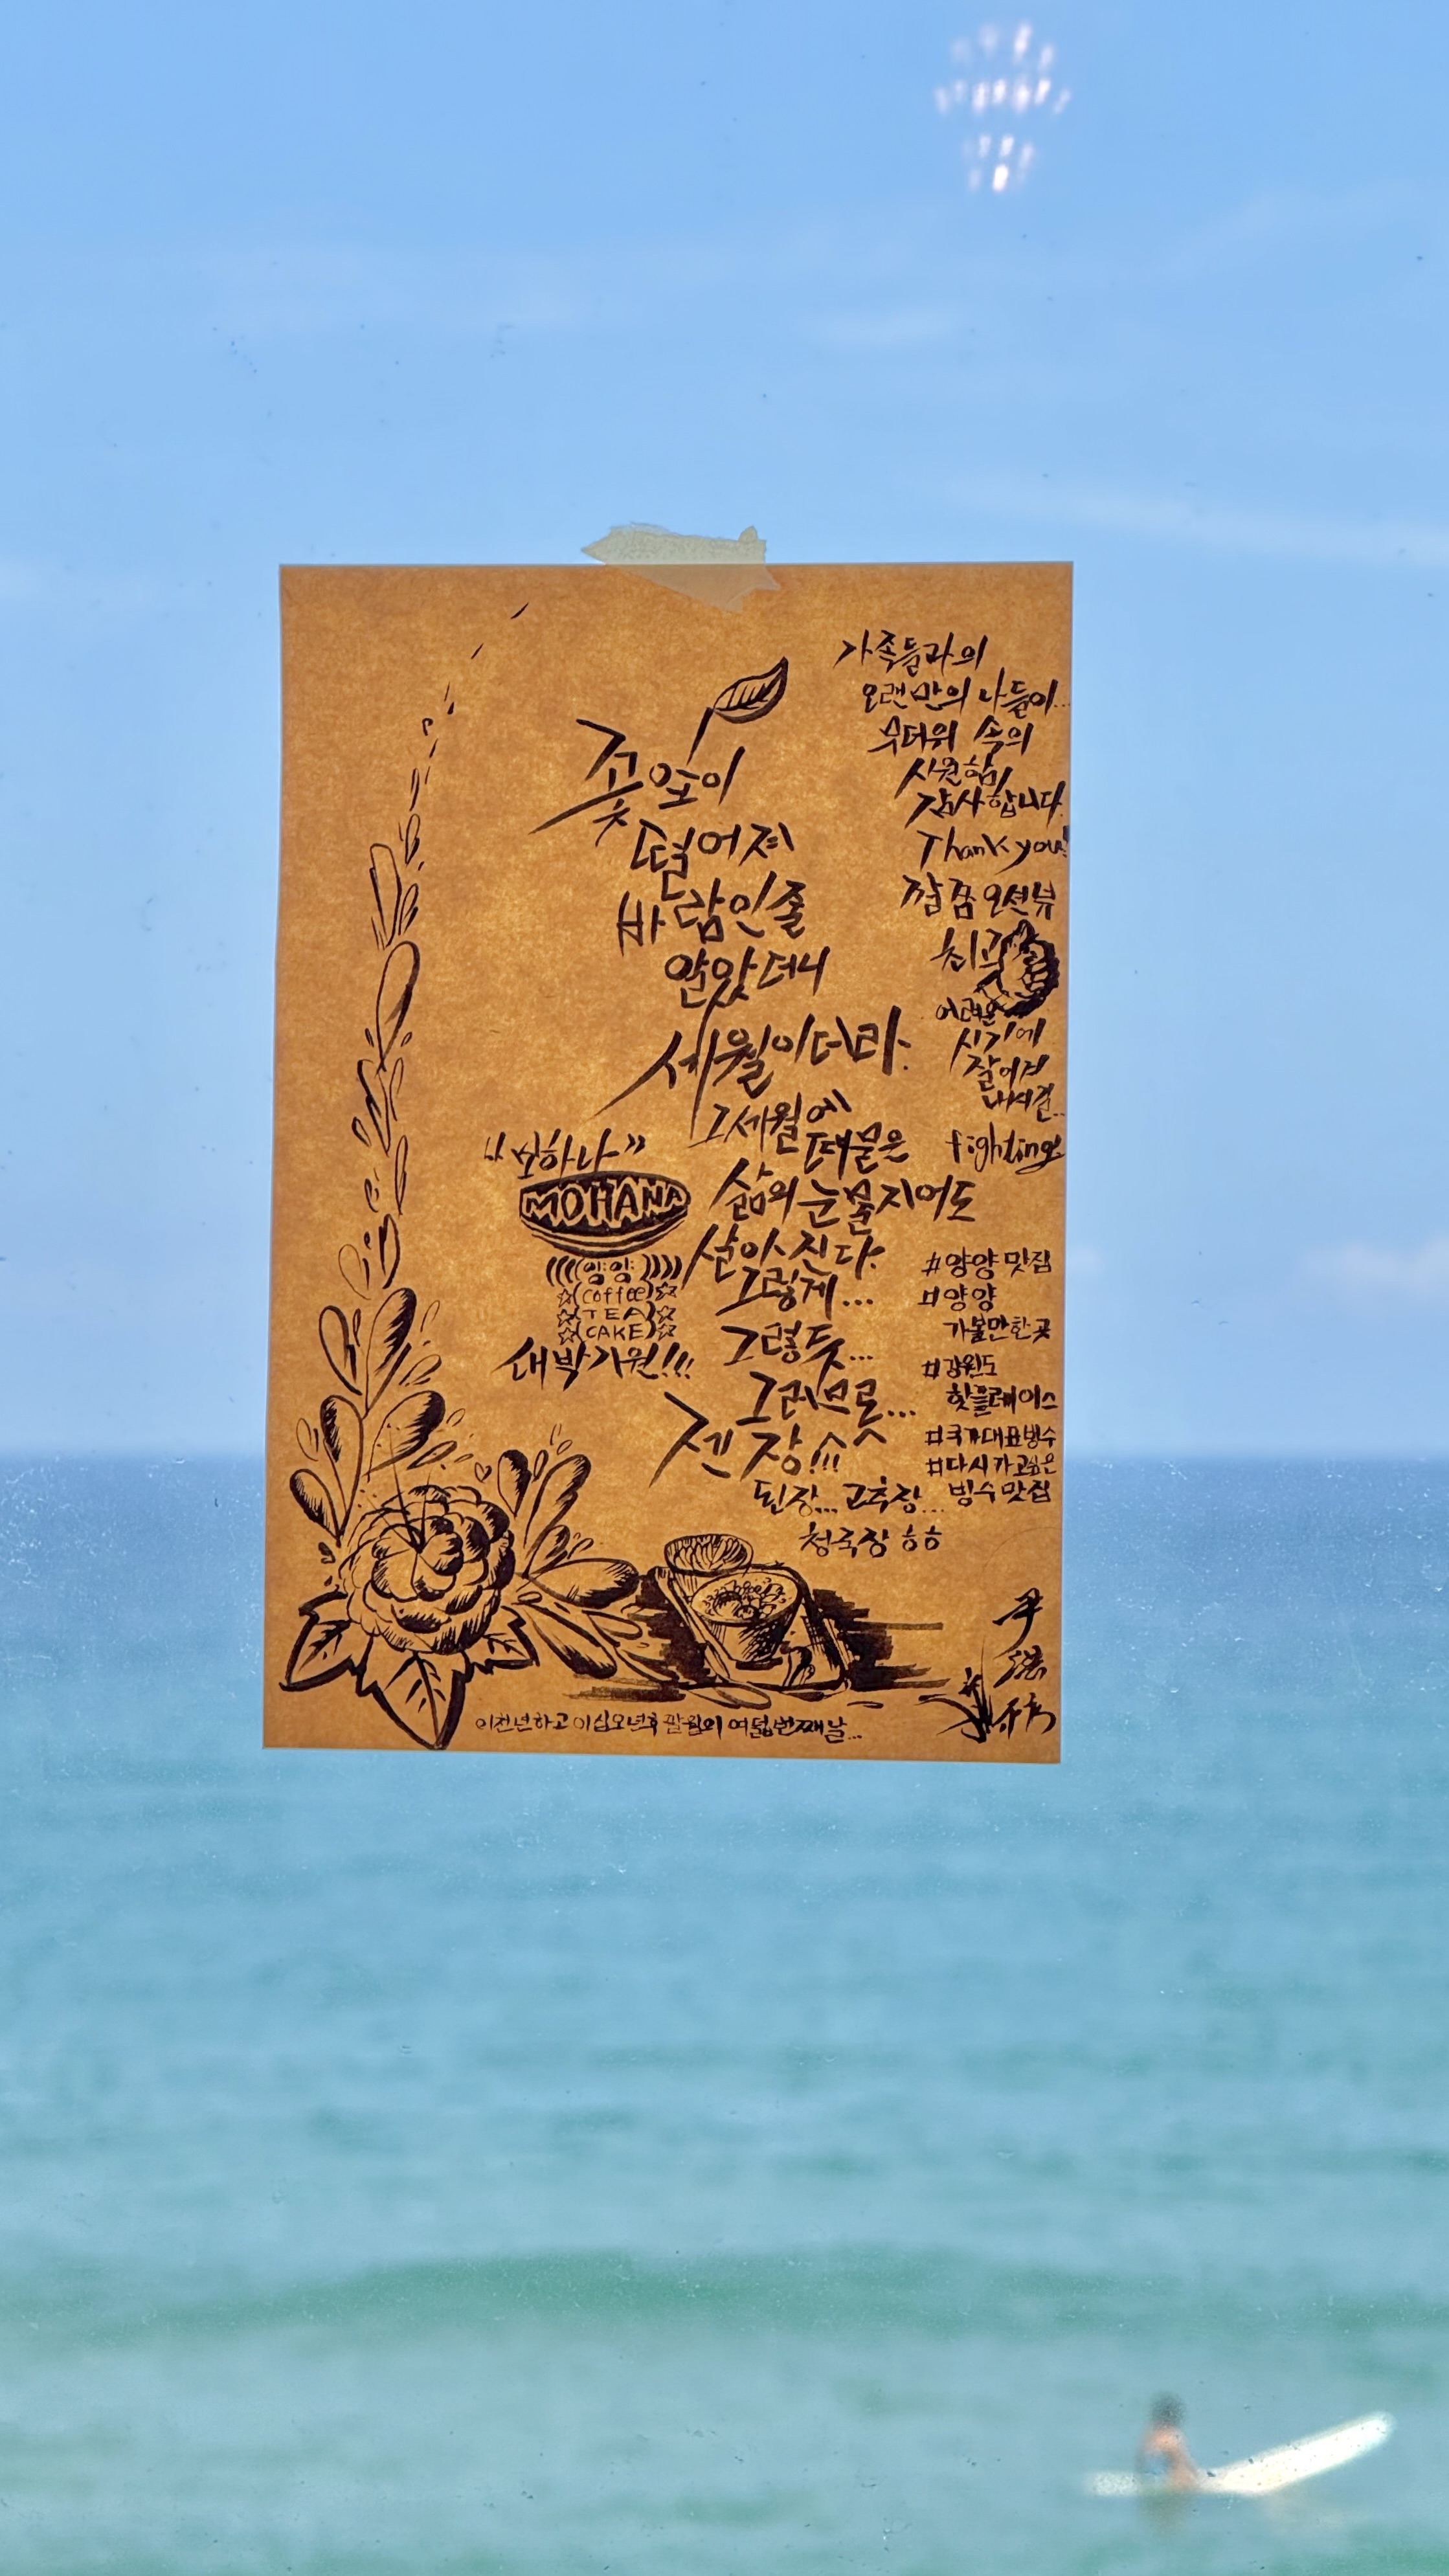 꽃잎이
떨어져
바람인줄
알았더니
세월이더라.
그세월에
때묻은
삶의 눈물지어도
살아진다.
그렇게...
그렇듯...
그러므로...
젠장!!!
된장... 고추장...
청국장 ㅎㅎ
"모하나"
MOHANA
양양
Coffee
TEA
CAKE
대박기원!!!
가족들과의
오랜만의 나들이...
무더위 속의
시원함
감사합니다.
Thank you!
짬쫌 오션뷰
최고
어려운
시기에
잘이겨
내시길...
fighting
#양양맛집
#양양
가볼만한곳
#강원도
핫플레이스
#국가대표빙수
#다시가고싶은
빙수맛집
이천년하고이십오년후팔월의 여덟번째날...
尹